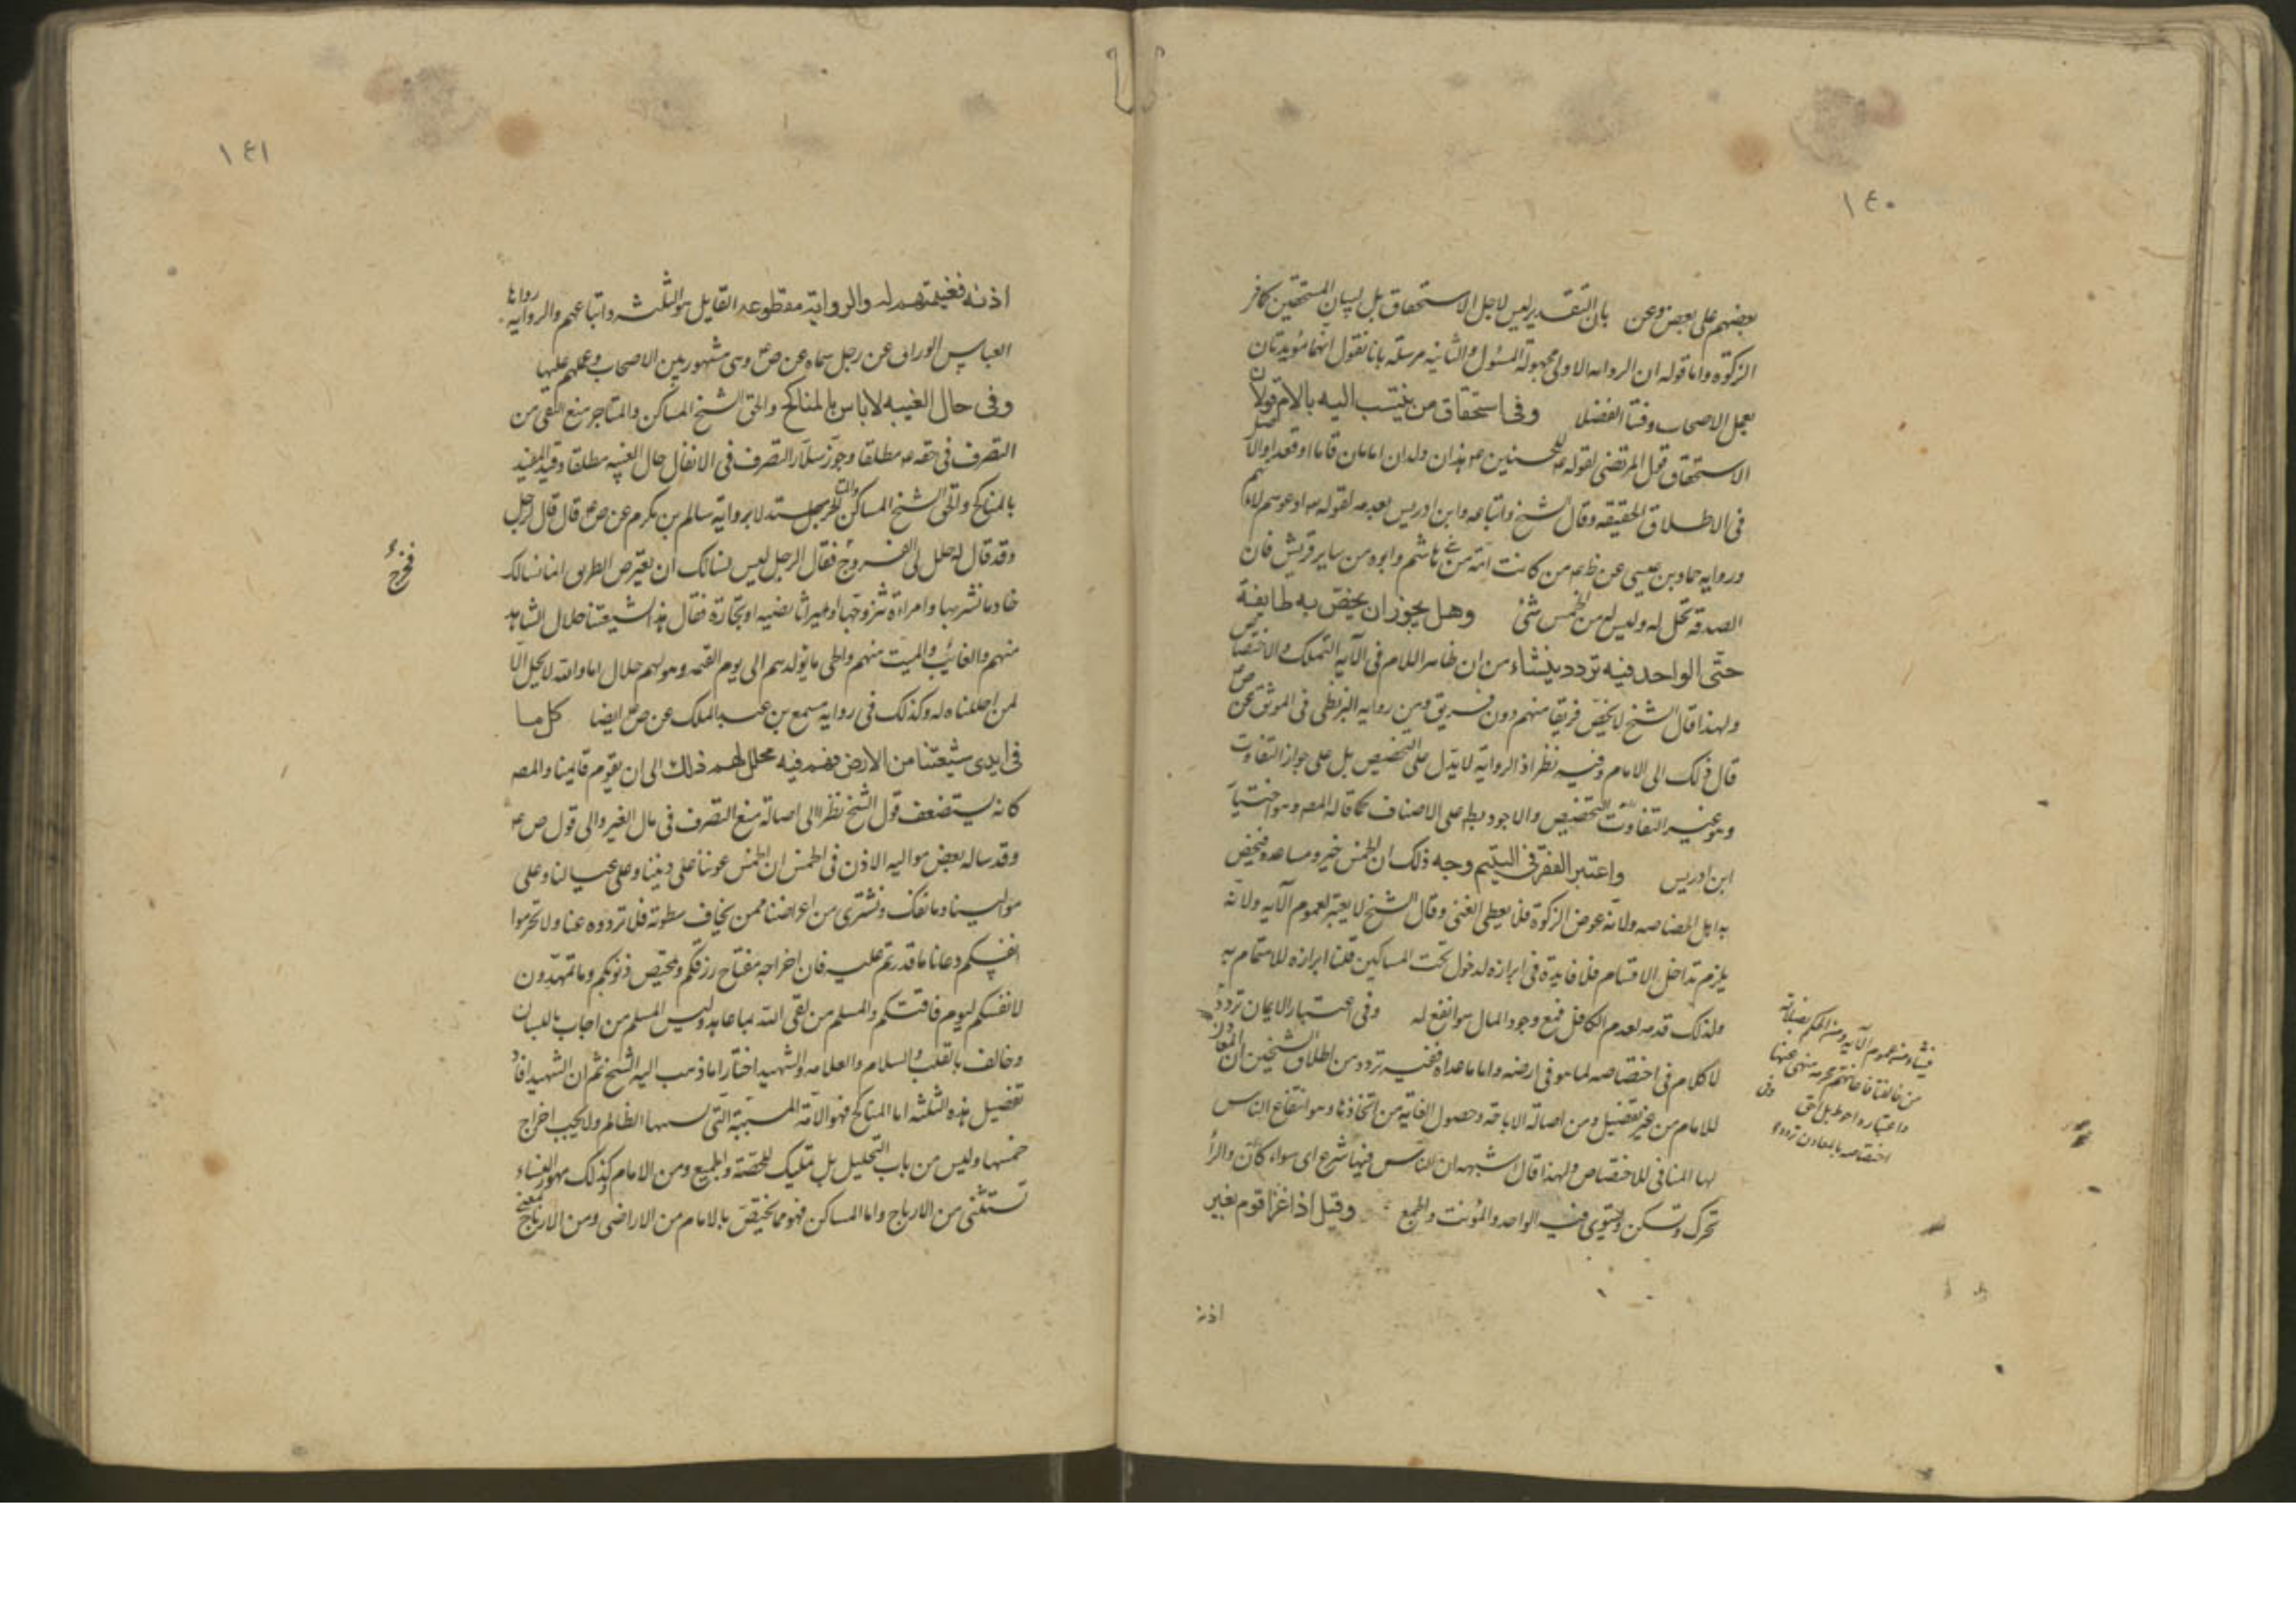 ١٤٠
بعضهم على بعض وعن بان التقدير ليس لاجل الاستحقاق بل لبيان المستحقين كافر
الزكوة واما قوله ان الرواية الاولى مجهولة المسئول والثانية مرسلة بانا نقول انها مؤيدتان
بعمل الاصحاب وفتيا الفضلا وفى استحقاق من ينتسب اليه بالام قولان
الاستحقاق قول المرتضى لقوله للحسنين هذان ولدان امامان قاما او قعدا والاصل
فى الاطلاق الحقيقه وقال الشيخ واتباعه وابن ادريس بعدمه لقوله ادعوهم لابائهم
ورواية حماد بن عيسى عن من كانت امه من هاشم وابوه من ساير قريش فان
الصدقة تحل له وليس له من الخمس شئ وهل يجوز ان يخص به طايفة
حتى الواحد فيه تردد ينشاء من ان ظاهر اللام فى الآية التملك والاختصاص
ولهذا قال الشيخ لا يخص فريقا منهم دون فريق ومن رواية البزنطى فى الموثق عن
قال ذلك الى الامام وفيه نظر اذ الرواية لا تدل على التخصيص بل على جواز التفاوت
وهو غير التفاوت التخصيص والاجود بسطه على الاصناف كما قاله المصه وهو اختيار
ابن ادريس واعتبر الفقر فى اليتيم وجه ذلك ان الخمس خير ومساعدة فيختص
به اهل الخصاصه ولانه عوض الزكوة فلا يعطى الغنى وقال الشيخ لا يعتبر لعموم الآية ولانه
يلزم تداخل الاقسام فلا فايدة فى ابرازه لدخول تحت المساكين قلنا ابرازه للاهتمام به
ولذلك قدمه لعدم الكافل فمع وجود المال هو انفع له وفى اعتبار الايمان تردد
لا كلام فى اختصاصه لما هو فى ارضه واما ما عداه ففيه تردد من اطلاق الشيخين ان المعادن
للامام من غير تفصيل ومن اصالة الاباحة وحصول الغاية من اتخاذها وهو انتفاع الناس
بها المنافى للاختصاص ولهذا قال اشبهه ان الناس فيها شرع اى سواء كان والراء
تحرك وتسكن ويستوى فيه الواحد والمؤنث والجمع وقيل اذا غزا قوم بغير
فينشاء من عموم الآية ومن الحكم بضلالة
من خالفنا فاعانتهم محرمه منهى عنها
واعتباره احوط بل اقوى وفى
اختصاصه بالمعادن تردد
اذنه
١٤١
اذنه فغنيمتهم له والرواية مقطوعة القايل هو الثلثه واتباعهم والرواية رواها
العباس الوراق عن رجل سماه عن ص وهى مشهورة بين الاصحاب وعملهم عليها
وفى حال الغيبه لا باس بالمناكح والحق الشيخ المساكن والمتاجر منع التقى من
التصرف فى حقه مطلقا وجوز سلار التصرف فى الانفال حال الغيبة مطلقا وقيد المفيد
بالمناكح والحق الشيخ المساكن مستدلا برواية سالم بن مكرم عن ص قال قال رجل
وقد قال له حلل لى الفروج فقال الرجل ليس يسالك ان يعترض الطريق انما يسالك
خادما يشتريها وامراءة يتزوجها او ميراثا يصيبه او تجارة فقال هذا لشيعتنا حلال الشاهد
منهم والغائب والميت منهم والحى ما يولد منهم الى يوم القيمه وهو لهم حلال اما والله لا يحل الا
لمن احللناه له وكذلك فى رواية مسمع بن عبد الملك عن ص ايضا كل ما
فى ايدى شيعتنا من الارض فهم فيه محلل لهم ذلك الى ان يقوم قايمنا والمصه
كانه يستضعف قول الشيخ نظرا الى اصالة منع التصرف فى مال الغير والى قول ص
وقد ساله بعض مواليه الاذن فى الخمس ان الخمس عوننا على ديننا وعلى عيالنا وعلى
موالينا وما نفك ونشترى من اعراضنا ممن يخاف سطوته فلا تزووه عنا ولا تحرموا
انفسكم دعانا ما قدرتم عليه فان اخراجه مفتاح رزقكم وتمحيص ذنوبكم وما تمهدون
لانفسكم ليوم فاقتكم والمسلم من لقى الله بما عاهد وليس المسلم من اجاب باللسان
وخالف بالقلب والسلام والعلامه والشهيد اختارا ما ذهب اليه الشيخ ثم ان الشهيد افاد
تفصيل هذه الثلثه اما المناكح فهو الامة المسبية التى سباها الظالم ولا يجب اخراج
خمسها وليس من باب التحليل بل تمليك للحصة والجميع ومن الامام وكذلك مهور النساء
تستثنى من الارباح واما المساكن فهو مما يختص بالامام من الاراضى ومن الارباح بمعنى